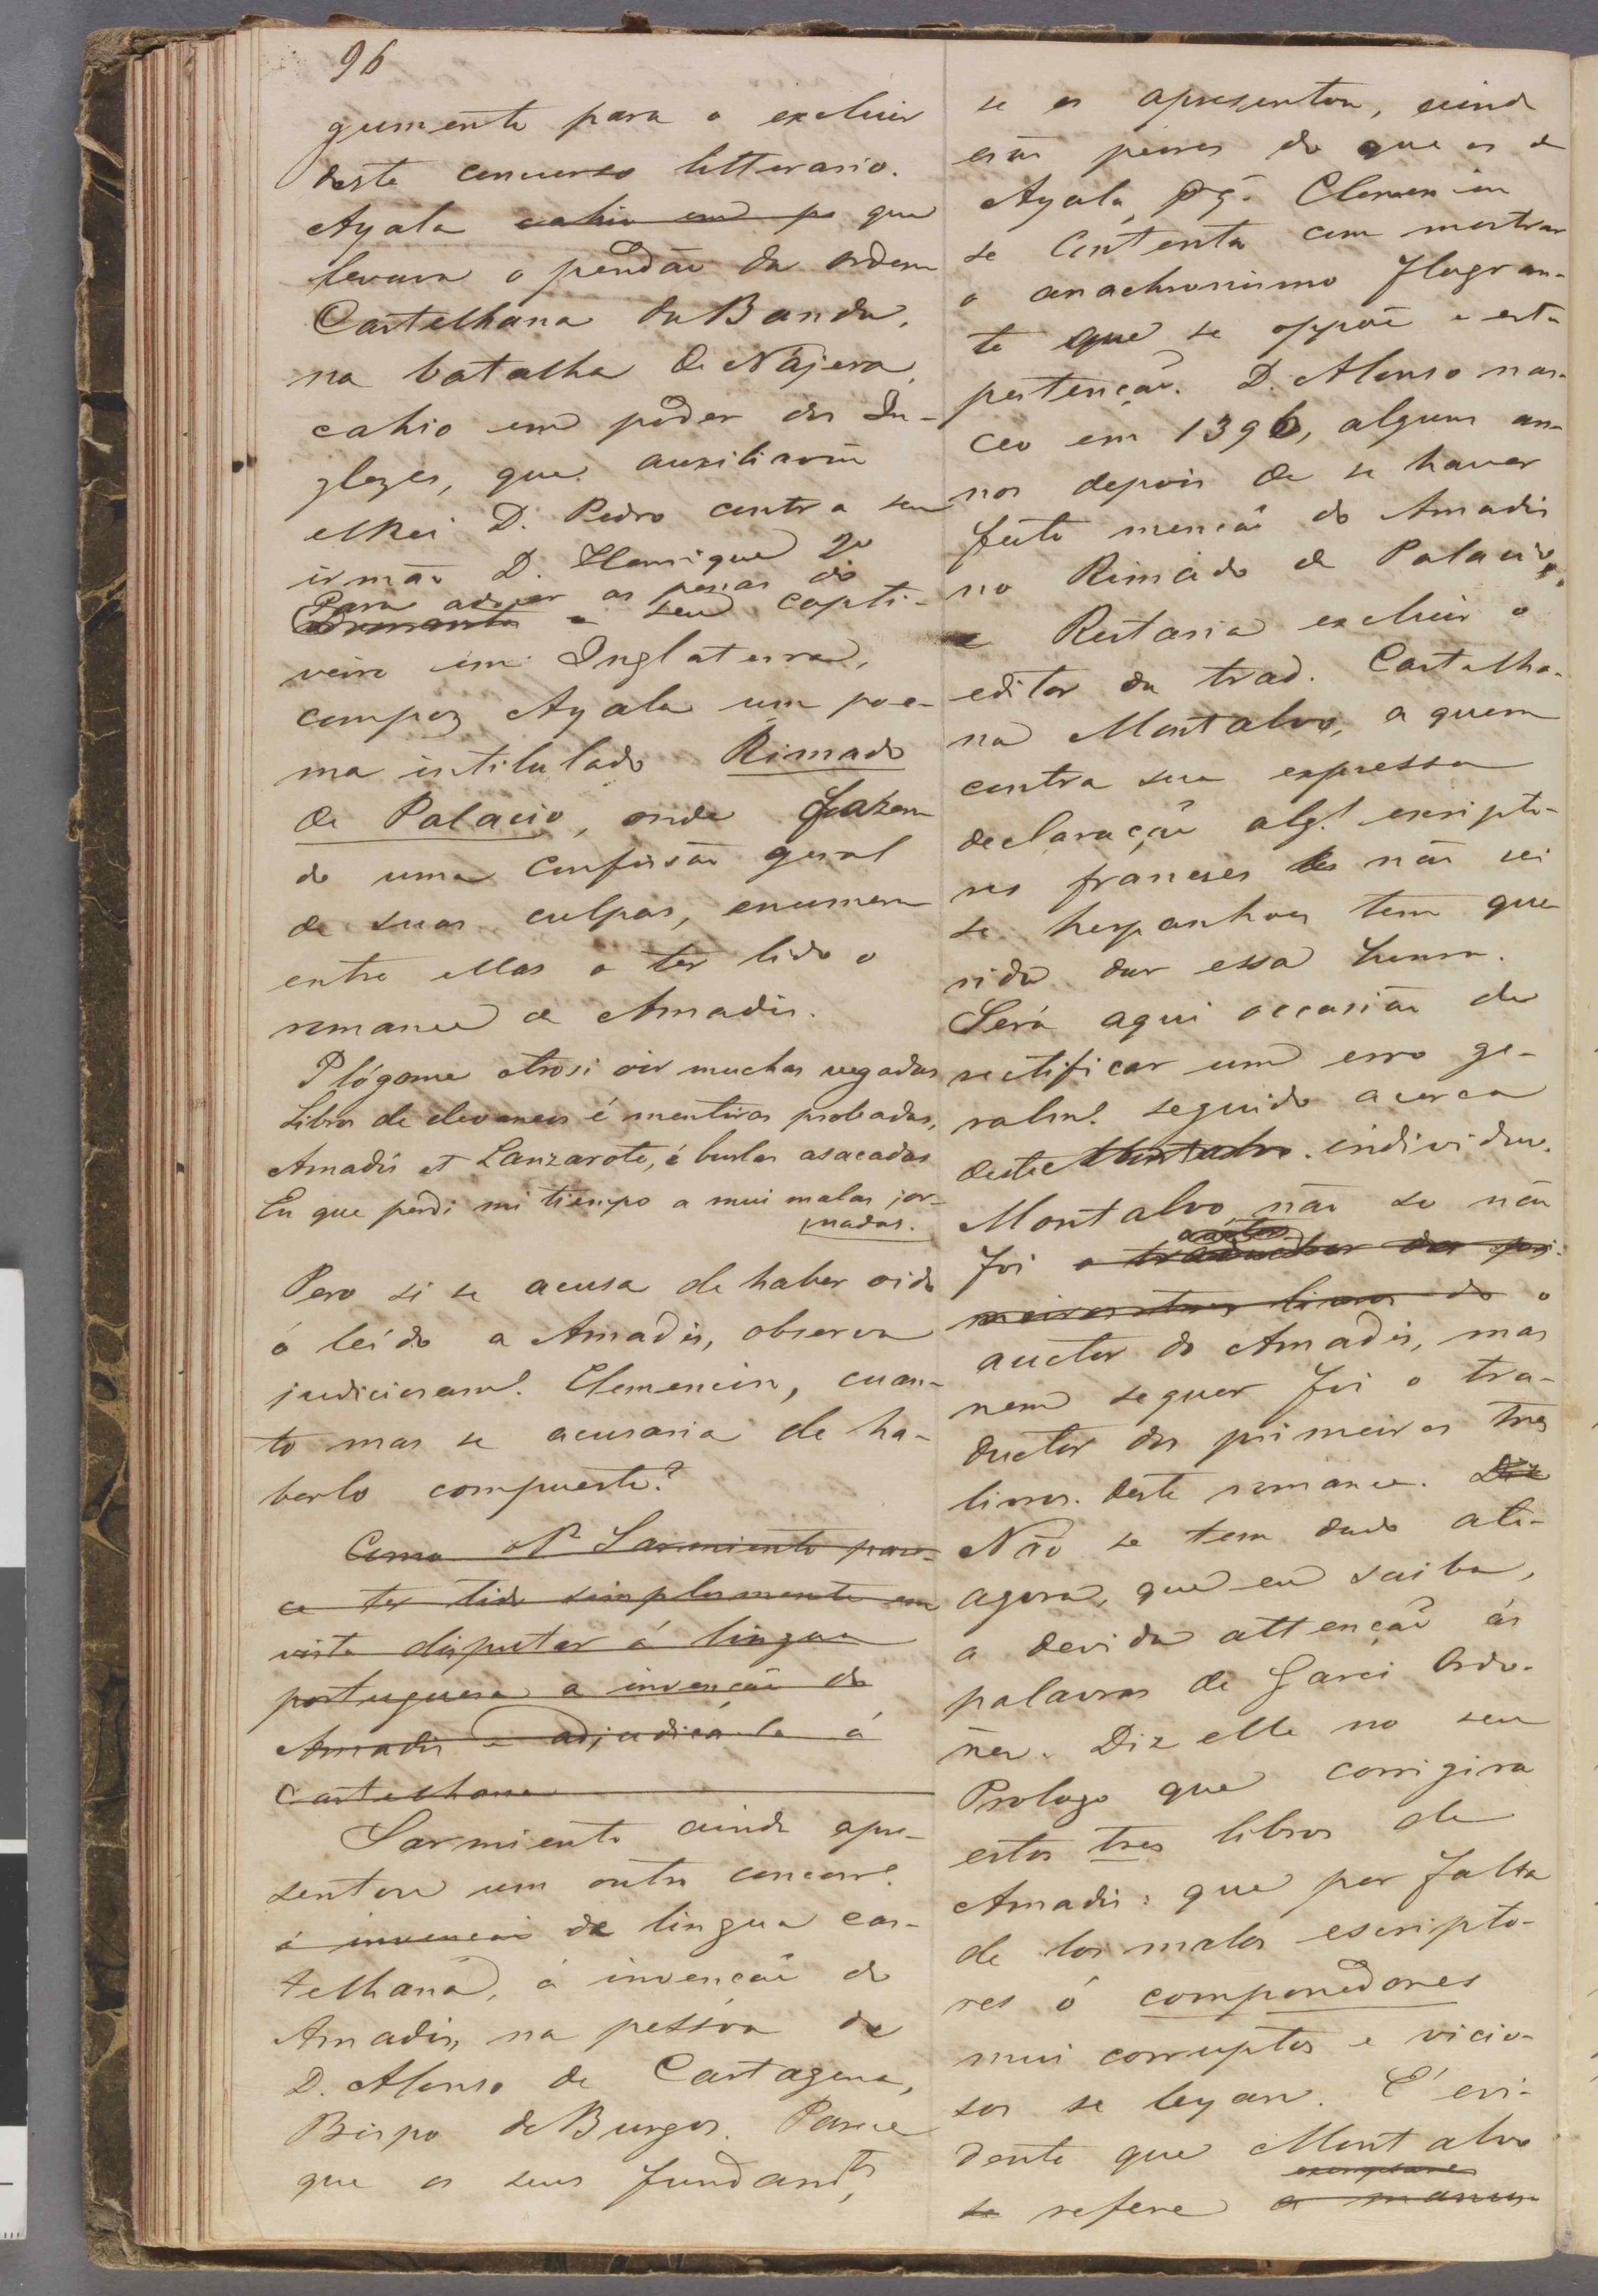 96
gumento para o excluir
deste concurso litterario.
Ayala cahio em po que
levava o pendão da ordem
Castelhana da Banda,
na batalha de Nájera,
cahio em poder dos In-
glezes, que auxiliavão
elRei D. Pedro contra seu
irmão D. Henrique 2º
Para adoçar as penas do
Durante o seu capti-
veiro em Inglaterra,
compoz Ayala um poe-
ma intitulado Rimado
de Palacio, onde fazen
do uma confissão geral
de suas culpas, enumera
entre ellas o ter lido o
romance de Amadis.
Plógome otrosi oir muchas vegadas
Libros de devaneos é mentiras probadas,
Amadis et Lanzarote, é burlas asacadas
En que perdi mi tiempo a mui malas jor-
nadas.
Pero si se acusa de haber oido
ó leído a Amadis, observa
judiciosamᵗᵉ. Clemencin, cuan-
to mas se acusaria de ha-
berlo compuesto?
Como o P. Sarmiento pare-
ce ter tido simplesmente em
vista disputar á lingua
portuguesa a invenção do
Amadis e adjudicá-la á
Castelhana
Sarmiento ainda apre-
sentou um outro concorrᵗᵉ.
á invenção da lingua cas-
telhana, á invenção do
Amadis, na pessoa de
D. Alonso de Cartagena,
Bispo de Burgos. Parece
que os seus fundamᵗᵒˢ,
se os apresentou, aind
erão peiores do que os de
Ayala, pq. Clemencin
se contenta com mostrar
o anachronismo flagran-
te que se oppõe a esta
pertenção. D. Alonso nas-
ceo em 1396, alguns an-
nos depois de se haver
feito menção do Amadis
no Rimado de Palacio.
Restaria excluir o
editor da trad. Castelha-
na Montalvo, a quem
contra sua expressa
declaração alg.ˢ escripto-
res franceses não sei
se hespanhoes tem que-
rido dar essa honra.
Será aqui occasião de
rectificar um erro ge-
ralmᵗᵉ. seguido acerca
deste Montalvo. individuo.
Montalvo não so não
foi auctor
o traductor dos pri-
meiros tres livros do o
auctor do Amadis, mas
nem sequer foi o tra-
ductor dos primeiros tres
livros deste romance. Diz
Não se tem dado até-
agora, que eu saiba,
a devida attenção ás
palavras de Garci Ordo-
ñez. Diz elle no seu
Prologo que corrigira
estos tres libros de
Amadis: que por falta
de los malos escripto-
res ó componedores
mui corruptos e vicio-
sos se leyan. É evi-
dente que Montalvo
exemplares
se refere a manus-